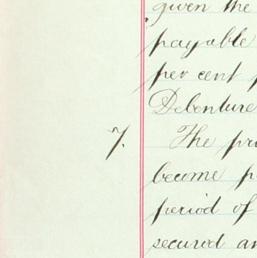 given the
payable
per cent p
Debenture
7. The pri
become p
period of
secured an